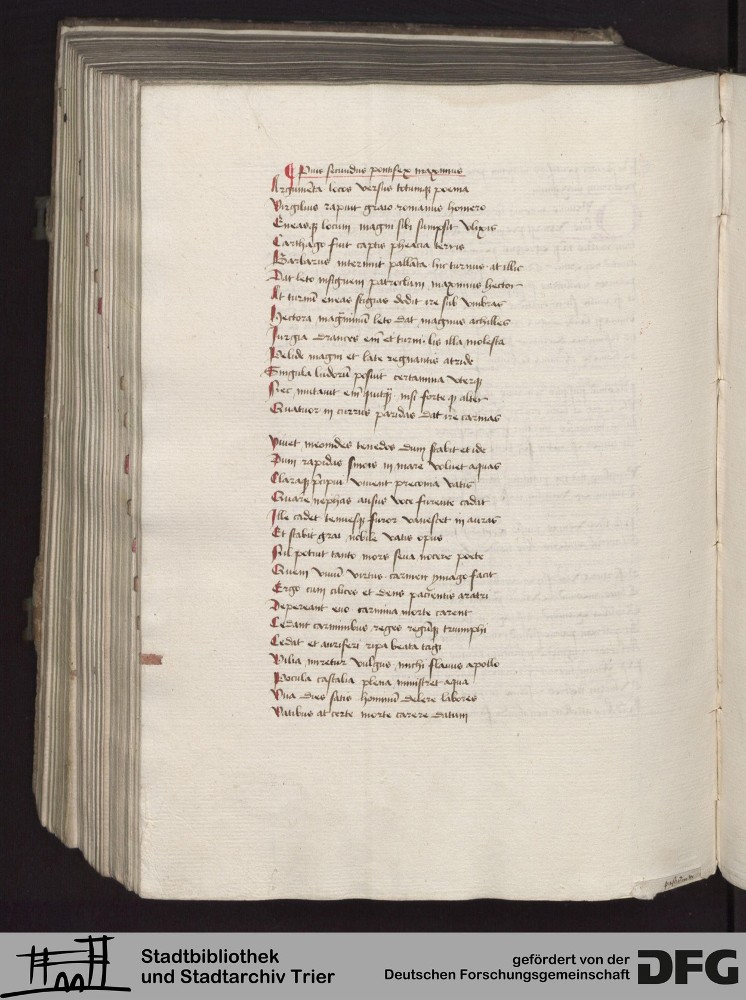 Pius secundus pontifex maximus
Argumẽta locos versus totumqꝫ poema
Virgilius rapuit graio romanus homero
Eneasqꝫ locum magni sibi sumpsit vlixis
Carthago fuit captis pheacia terris
Barbarus interimit pallãta hic turnus at illic
Dat leto insignem patroclum maximus hector
At turnũ eneas stigias dedit ire sub vmbras
Hectora magñimũ leto dat magnus achilles
Iurgia drances em̃ et turni lis illa molesta
Pelide magni et late regnantis atride
Singula ludorũ posuit certamina vterqꝫ
Nec mutauit nisi forte qꝫ alter
Quatuor in currus dat ire carinas
Viuet meonides tenedos dum stabit et ide
Dum rapidas simois in mare voluet aquas
Claraqꝫ viuent preconia vatis
Quare ausus voce furente cadit
Ille cadet tenuesqꝫ furor vanescet in auras
Et stabit grai nobile vatis opus
Nil potuit tanto mors seua nocere poete
Quem viuũ virtus carmen ymago facit
Ergo cum silices et dens pacientis aratri
Depereant euo carmina morte carent
Cedant carminibus reges regũqꝫ triumphi
Cedat et auriferi ripa beata tagi
Vilia miretur vulgus michi flauus apollo
Pocula castalia plena ministret aqua
Vna dies satis hominũ delere labores
Vatibus at certe morte carere datum
Stadtbibliothek
und Stadtarchiv Trier
gefördert von der
Deutschen Forschungsgemeinschaft
DFG